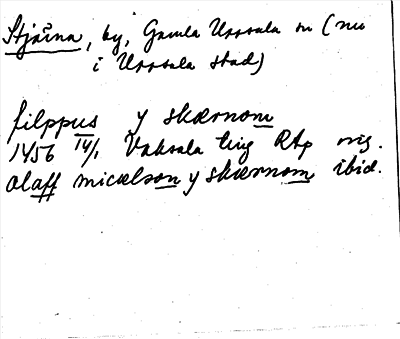 Stjärna, by, Gamla Uppsala sn (nu
i Uppsala stad)
filppus y skærnom
1456 14/1 Vaksala ting RAp orig.
olaff micælson y skærnom ibid.